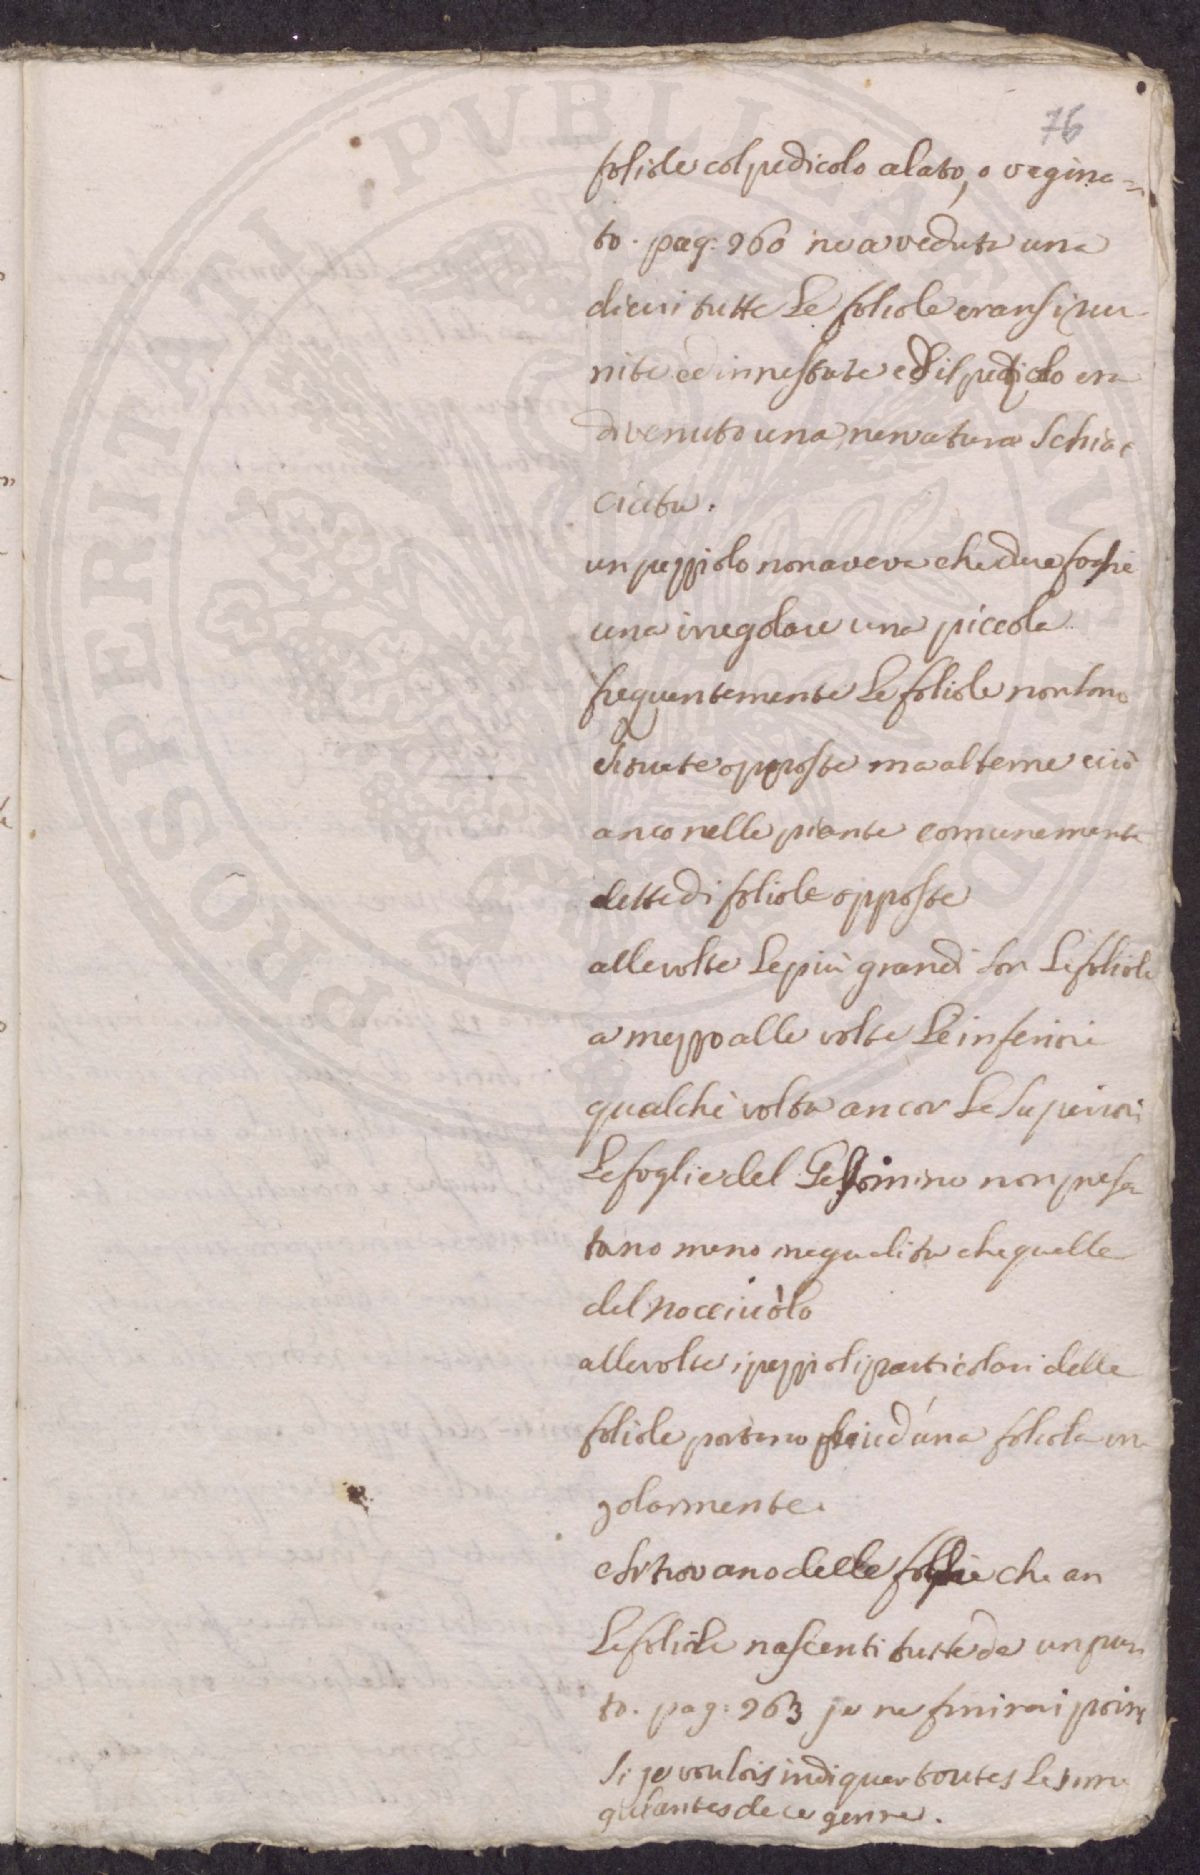 76
foliole col pedicolo alato, o vagina=
to. pag: 260 ne a veduta una
di cui tutte Le foliole eransi riu
nite ed innestate ed il pedicolo era
divenuto una nervatura schiac
ciata.
un pezziolo non aveva che due foglie
una irregolare una piccola
frequentemente Le foliole non sono
situate opposte ma alterne e ciò
anco nelle piante comunemente
dette di foliole opposte
alle volte Le più grandi son Le foliole
a mezzo alle volte Le inferiori
qualche volta ancor Le superiori
Le foglie del Gelsomino non presen
tano meno inegualità che quelle
del Nocciuòlo
alle volte i pezzioli particolari delle
foliole portano più d'una foliola irre
golarmente.
e si trovano delle foglie che an
Le foliole nascenti tutte da un pun
to. pag: 263 je ne finirai point
si je voulois indiquer toutes Les irre
gularites de ce genre.
PROSPERITATI PUBLICAE